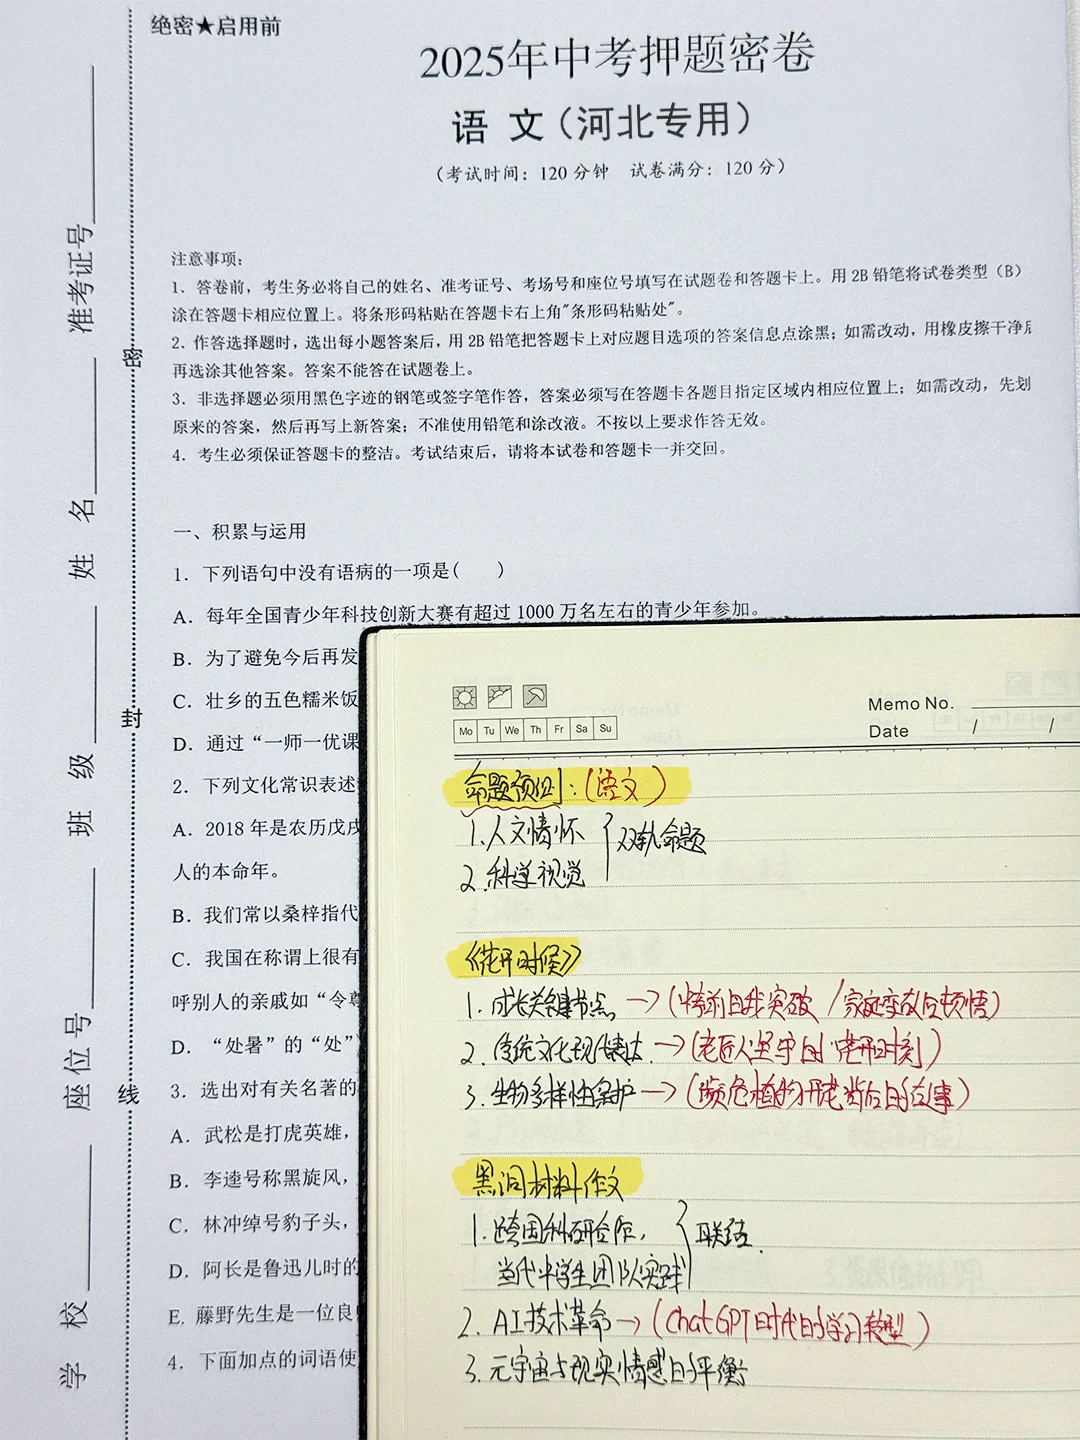 绝密★启用前
2025年中考押题密卷
语 文（河北专用）
（考试时间：120 分钟 试卷满分：120 分）
注意事项：
1．答卷前，考生务必将自己的姓名、准考证号、考场号和座位号填写在试题卷和答题卡上。用 2B 铅笔将试卷类型（B）
涂在答题卡相应位置上。将条形码粘贴在答题卡右上角"条形码粘贴处"。
2．作答选择题时，选出每小题答案后，用 2B 铅笔把答题卡上对应题目选项的答案信息点涂黑；如需改动，用橡皮擦干净后
再选涂其他答案。答案不能答在试题卷上。
3．非选择题必须用黑色字迹的钢笔或签字笔作答，答案必须写在答题卡各题目指定区域内相应位置上；如需改动，先划
原来的答案，然后再写上新答案；不准使用铅笔和涂改液。不按以上要求作答无效。
4．考生必须保证答题卡的整洁。考试结束后，请将本试卷和答题卡一并交回。
一、积累与运用
1．下列语句中没有语病的一项是(　　)
A．每年全国青少年科技创新大赛有超过 1000 万名左右的青少年参加。
B．为了避免今后再发
C．壮乡的五色糯米饭
D．通过“一师一优课
2．下列文化常识表述
A．2018 年是农历戊戌
人的本命年。
B．我们常以桑梓指代
C．我国在称谓上很有
呼别人的亲戚如“令尊
D．“处暑”的“处”
3．选出对有关名著的
A．武松是打虎英雄，
B．李逵号称黑旋风，
C．林冲绰号豹子头，
D．阿长是鲁迅儿时的
E．藤野先生是一位良
4．下面加点的词语使
学 校
座位号
班 级
姓 名
准考证号
密
封
线
Mo Tu We Th Fr Sa Su
Memo No.
Date / /
命题预测：（语文）
1.人文情怀
双轨命题
2.科学视觉
《花开时候》
1.成长关键节点→（烤前自我突破/家庭变故后顿悟）
2.传统文化现代表达→（老匠人坚守的"花开时刻）
3.生物多样性保护→（濒危植物开花背后的故事）
黑洞材料作文
1.跨国科研合作，
联结.
当代中学生团队实践
2.AI技术革命→（ChatGPT时代的学习转型）
3.元宇宙与现实情感的平衡